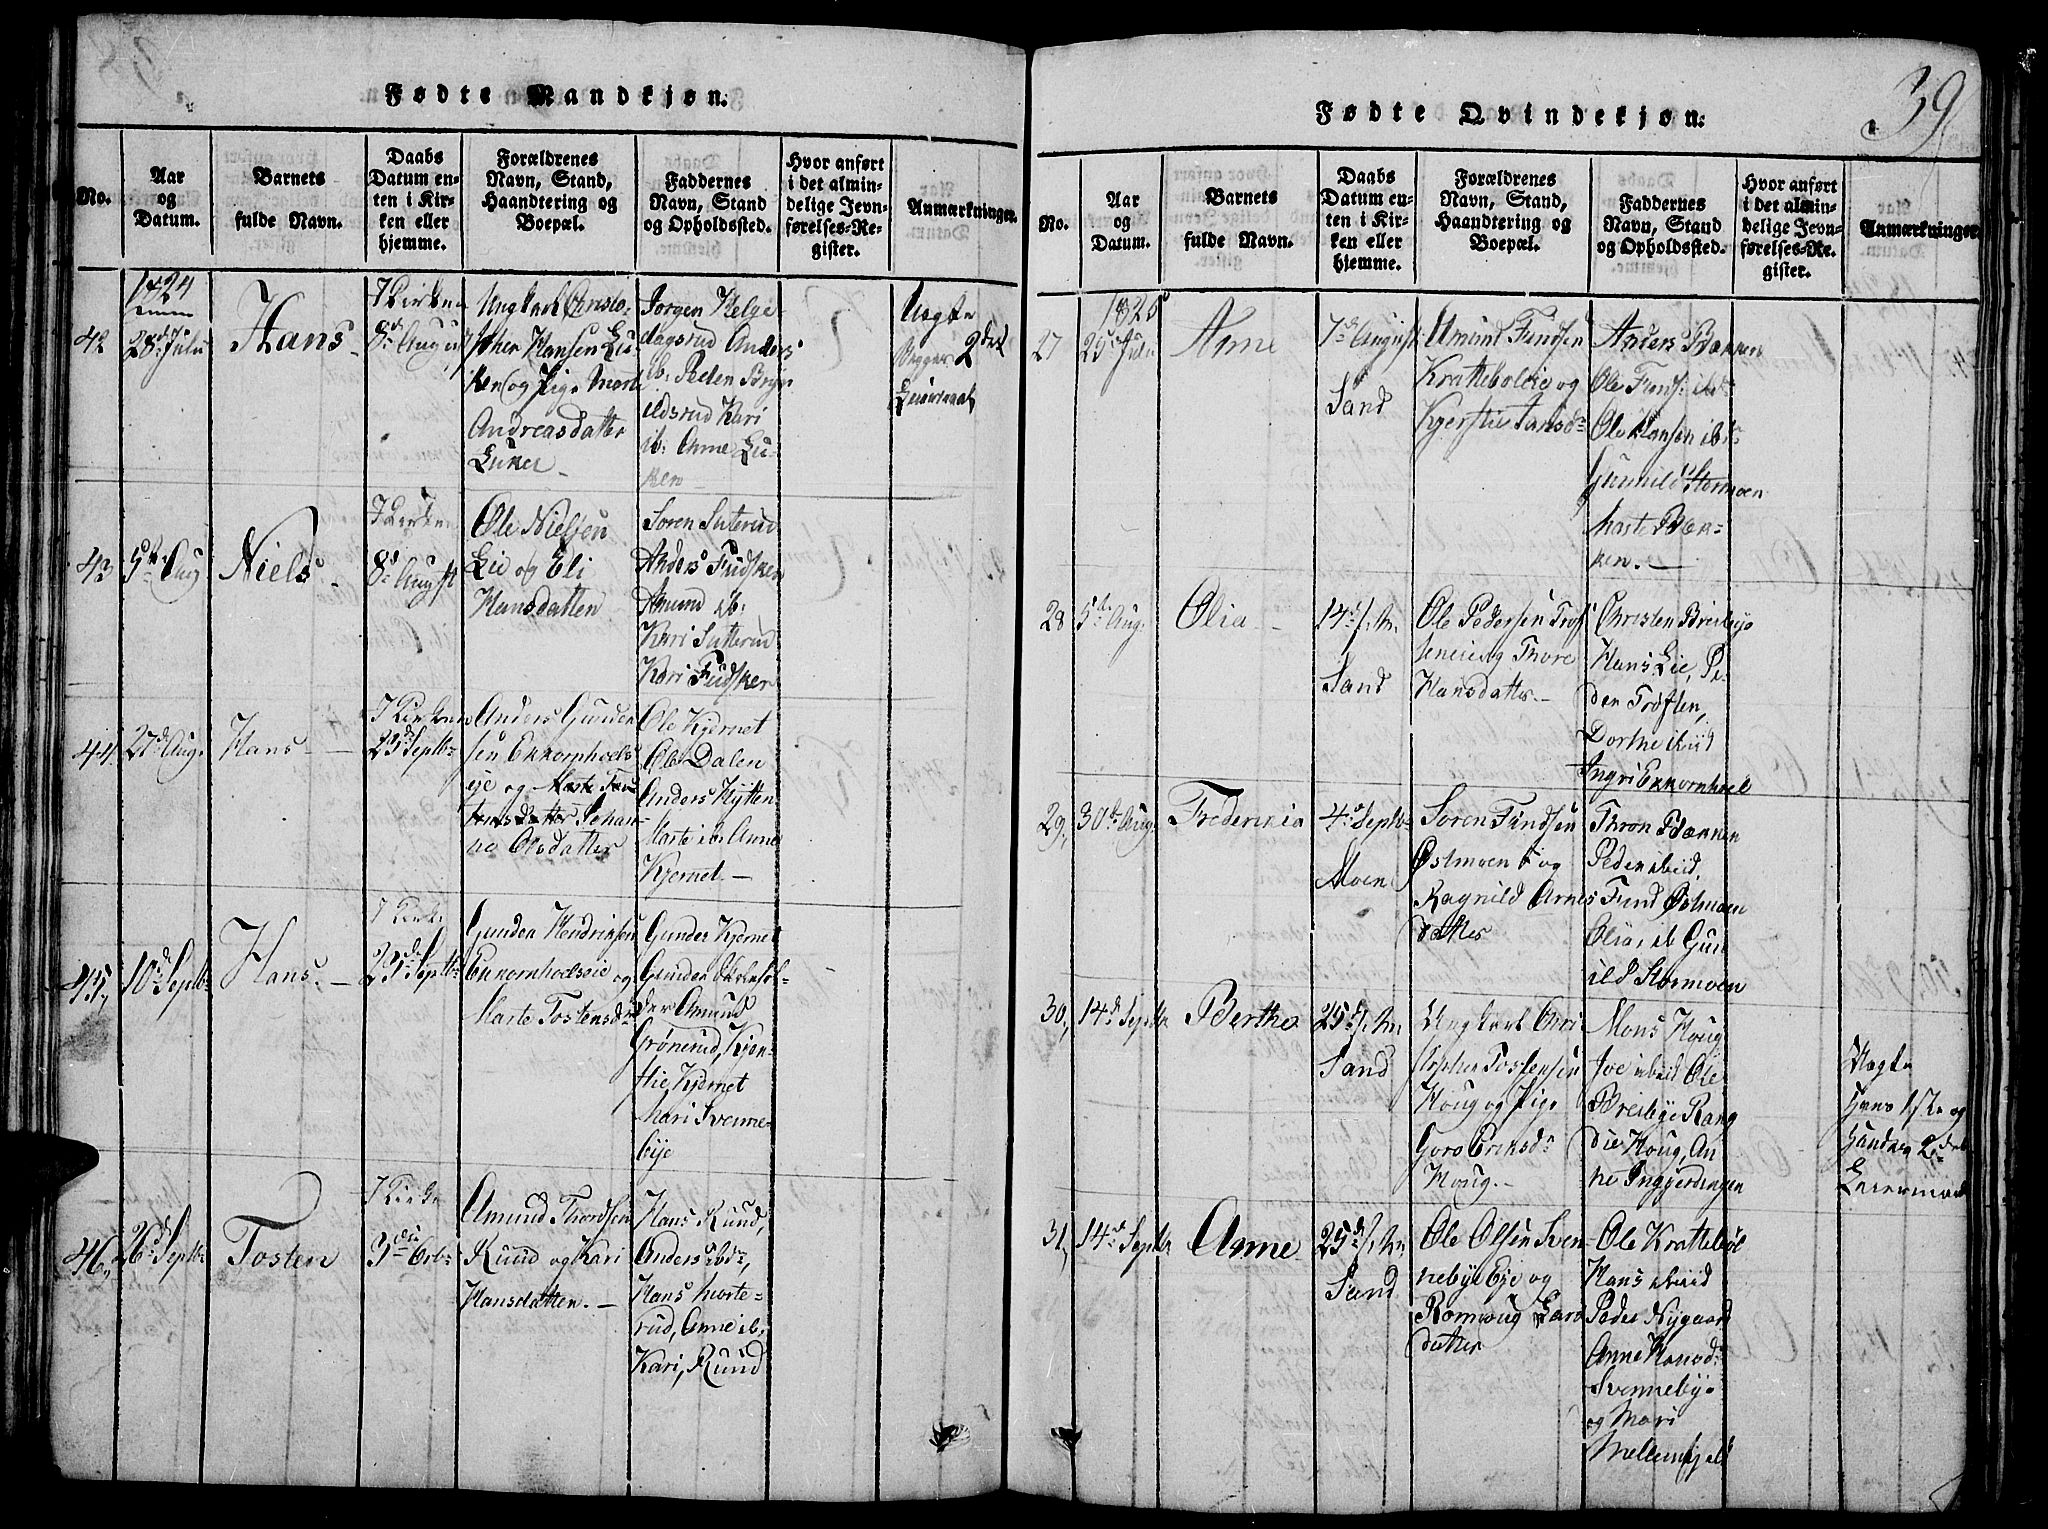 Fødte Mandkjøn.
No.
Aar
og
Datum.
Barnets
fulde Navn.
Daabs
Datum en-
ten i Kir-
ken eller
hjemme.
Forældrenes
Navn, Stand,
Haandtering og
Boepæl.
Faddernes
Navn, Stand
og Opholdssted.
Hvor anført
i det almin-
delige Jevn-
førelses-Re-
gister.
Anmærkninger.
1824
42
28d Julii
Hans
I Kirken
8d August
Ungkarl Christo-
pher Hansen Lu-
ken og Pige Marte
Andreasdatter
Luken
Jørgen Helge
dagsrud Anders
ib: Peder Bryn
ildsrud Kari
ib: Anne Lu-
ken
Uægte
Begges 2det
Leiermaal
43
5te Aug
Niels
I Kirken
8d August
Ole Nielsen
Lie og Eli
Hansdatter
Søren Sutterud
Anders Fudsker
Amund ib:
Kari Sutterud
Kari Fudsker
44
27d Aug.
Hans
I Kirken
23d Septbr
Anders Gunder
sen Ekkornhoels
eje og
Johan
ne Olsdatter
Ole Kjernet
Ole Dalen
Anders Hytten
Marte ib. Anne
Kjernet
45
10d Septbr
Hans
I Kirke
23d Septbr
Gunder Hendriksen
Ekkornhoelseie og
Marte Tostensdtr
Gunder Kjernet
Gunder
Amund
Grønerud, Kjer-
stie Kjernet
Mari Svenne-
bye
46
26d Septbr
Tosten
I Kirke
3die Octbr
Amund Thordsen
Ruud og Kari
Hansdatter.
Hans Ruud,
Anders ibd:,
Hans Morte-
rud, Anne ib.
Kari, Ruud
39
Fødte Qvindekjøn.
No.
Aar
og
Datum.
Barnets
fulde Navn.
Daabs
Datum en-
ten i Kir-
ken eller
hjemme.
Forældrenes
Navn, Stand,
Haandtering og
Boepæl.
Faddernes
Navn, Stand
og Opholdssted.
Hvor anført
i det almin-
delige Jevn-
førelses-Re-
gister.
Anmærkninger
1825
27
25d Julii
Anne
7d August
Sand
Amund Findsen
Kratteboleie og
Kjerstie Hansdr
Anders Bækken
Ole Finds: ibd
Ole Hansen ibd:
Gunnild Stormoen
Marte Bæk-
ken.
28
5te Aug.
Olia
14d
Sand
Ole Pedersen Trøf
teneie og Thore
Hansdatter
Christen Breibye
Hans Lie, Pe-
der Trøften,
Dorthe ibid
Ingri Ekkornhoel
29
30te Aug.
Frederikia
4d Septbr
Moen
Søren Findsen
Østmoen og
Ragnild Arnes
datter
Thron Bækken
Peder ibid.
Find Østmoen
Olia, ib Gun
ild Stormoen
30
14d Septbr
Berthe
25d
Sand
Ungkarl Chri
stopher Tostensen
Houg og Pige
Goro Eriksdr
Houg.
Mons Houg
Joe ibid Ole
Breibye Rang
die Houg, An
ne Inggjerdingen
Uægte
Hans 1ste og
Hendes 2det
Leiermaal
31
14d Septbr
Anne
25d
Sand
Ole Olsen Sven
nebye Eje og
Romoug Lars
datter
Ole Kratteböl
Hans ibid
Peder Nygaard
Anne Hansd:
Svennebye
og Mari
Mellemfjeld